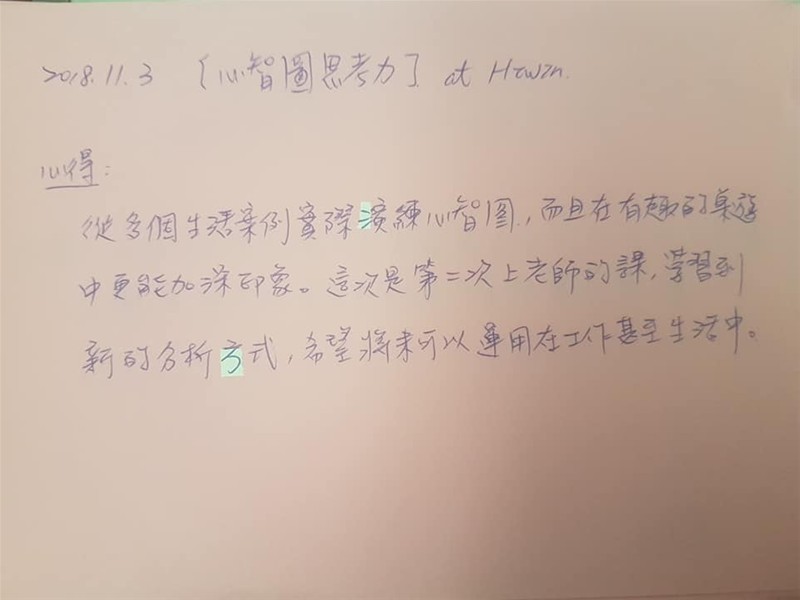 2018.11.3 [心智圖思考力] at Hzwzn.
心得:
從多個生活案例實際演練心智图,而且在有趣的桌遊
中更能加深印象。這次是第二次上老師的課,學習到
新的分析方式,希望將來可以運用在工作甚至生活中。